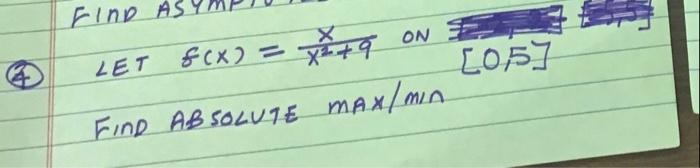 FIND ASYMPTO
④ LET f(x) = x/(x²+9) ON [0,5]
FIND ABSOLUTE MAX/MIN